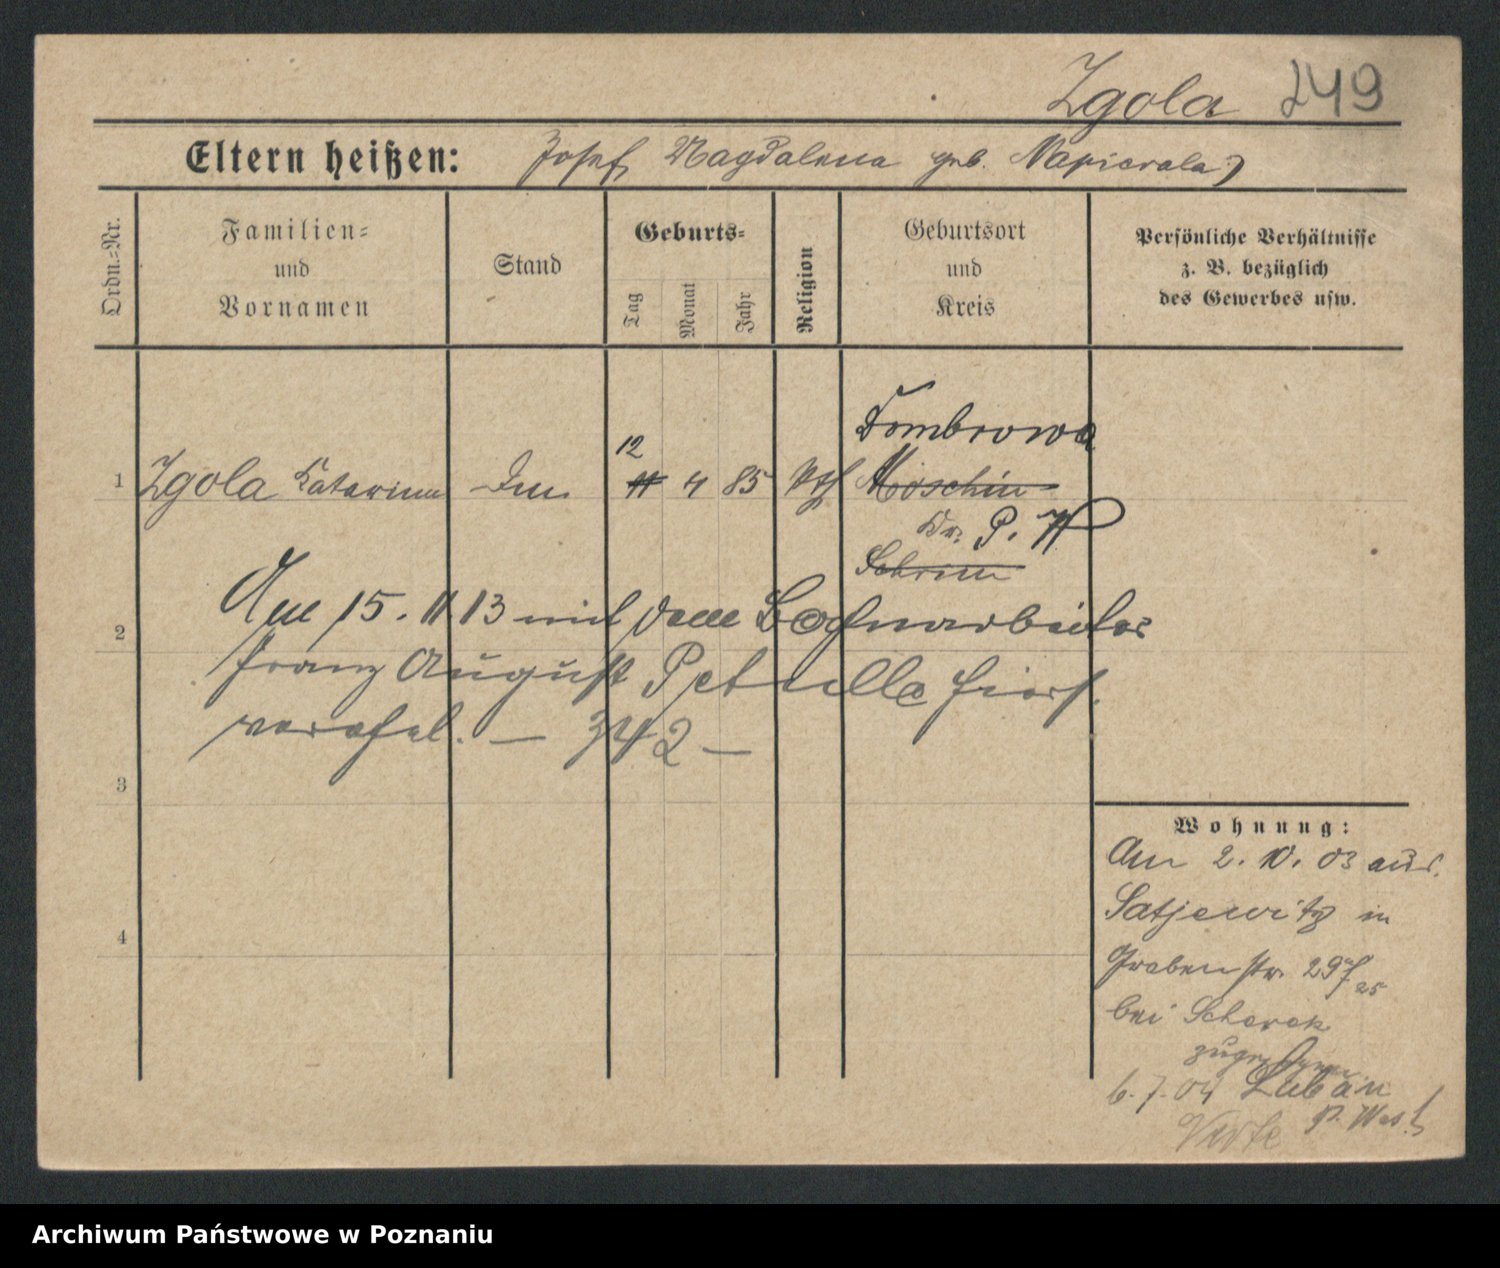 Zgola 249
Eltern heißen: Josef, Magdalena geb. Napierala)
Ordn.=Nr.
Familien=
und
Vornamen
Stand
Geburts=
Tag
Monat
Jahr
Religion
Geburtsort
und
Kreis
Persönliche Verhältnisse
z. B. bezüglich
des Gewerbes usw.
Dombrowa
12
1 Zgola Katarina 11 4 85 kth Moschin
Kr. P. W
Schrim
Am 15. 11. 13 mit dem Bahnarbeiter
2
Franz August Petrulla hier
verehel. — 342 —
3
4
Wohnung:
Am 2. 10. 03 aus
Satjewitz in
Grabenstr. 29
bei Scherek
zugezogen
6. 7. 04 Luban
P. West